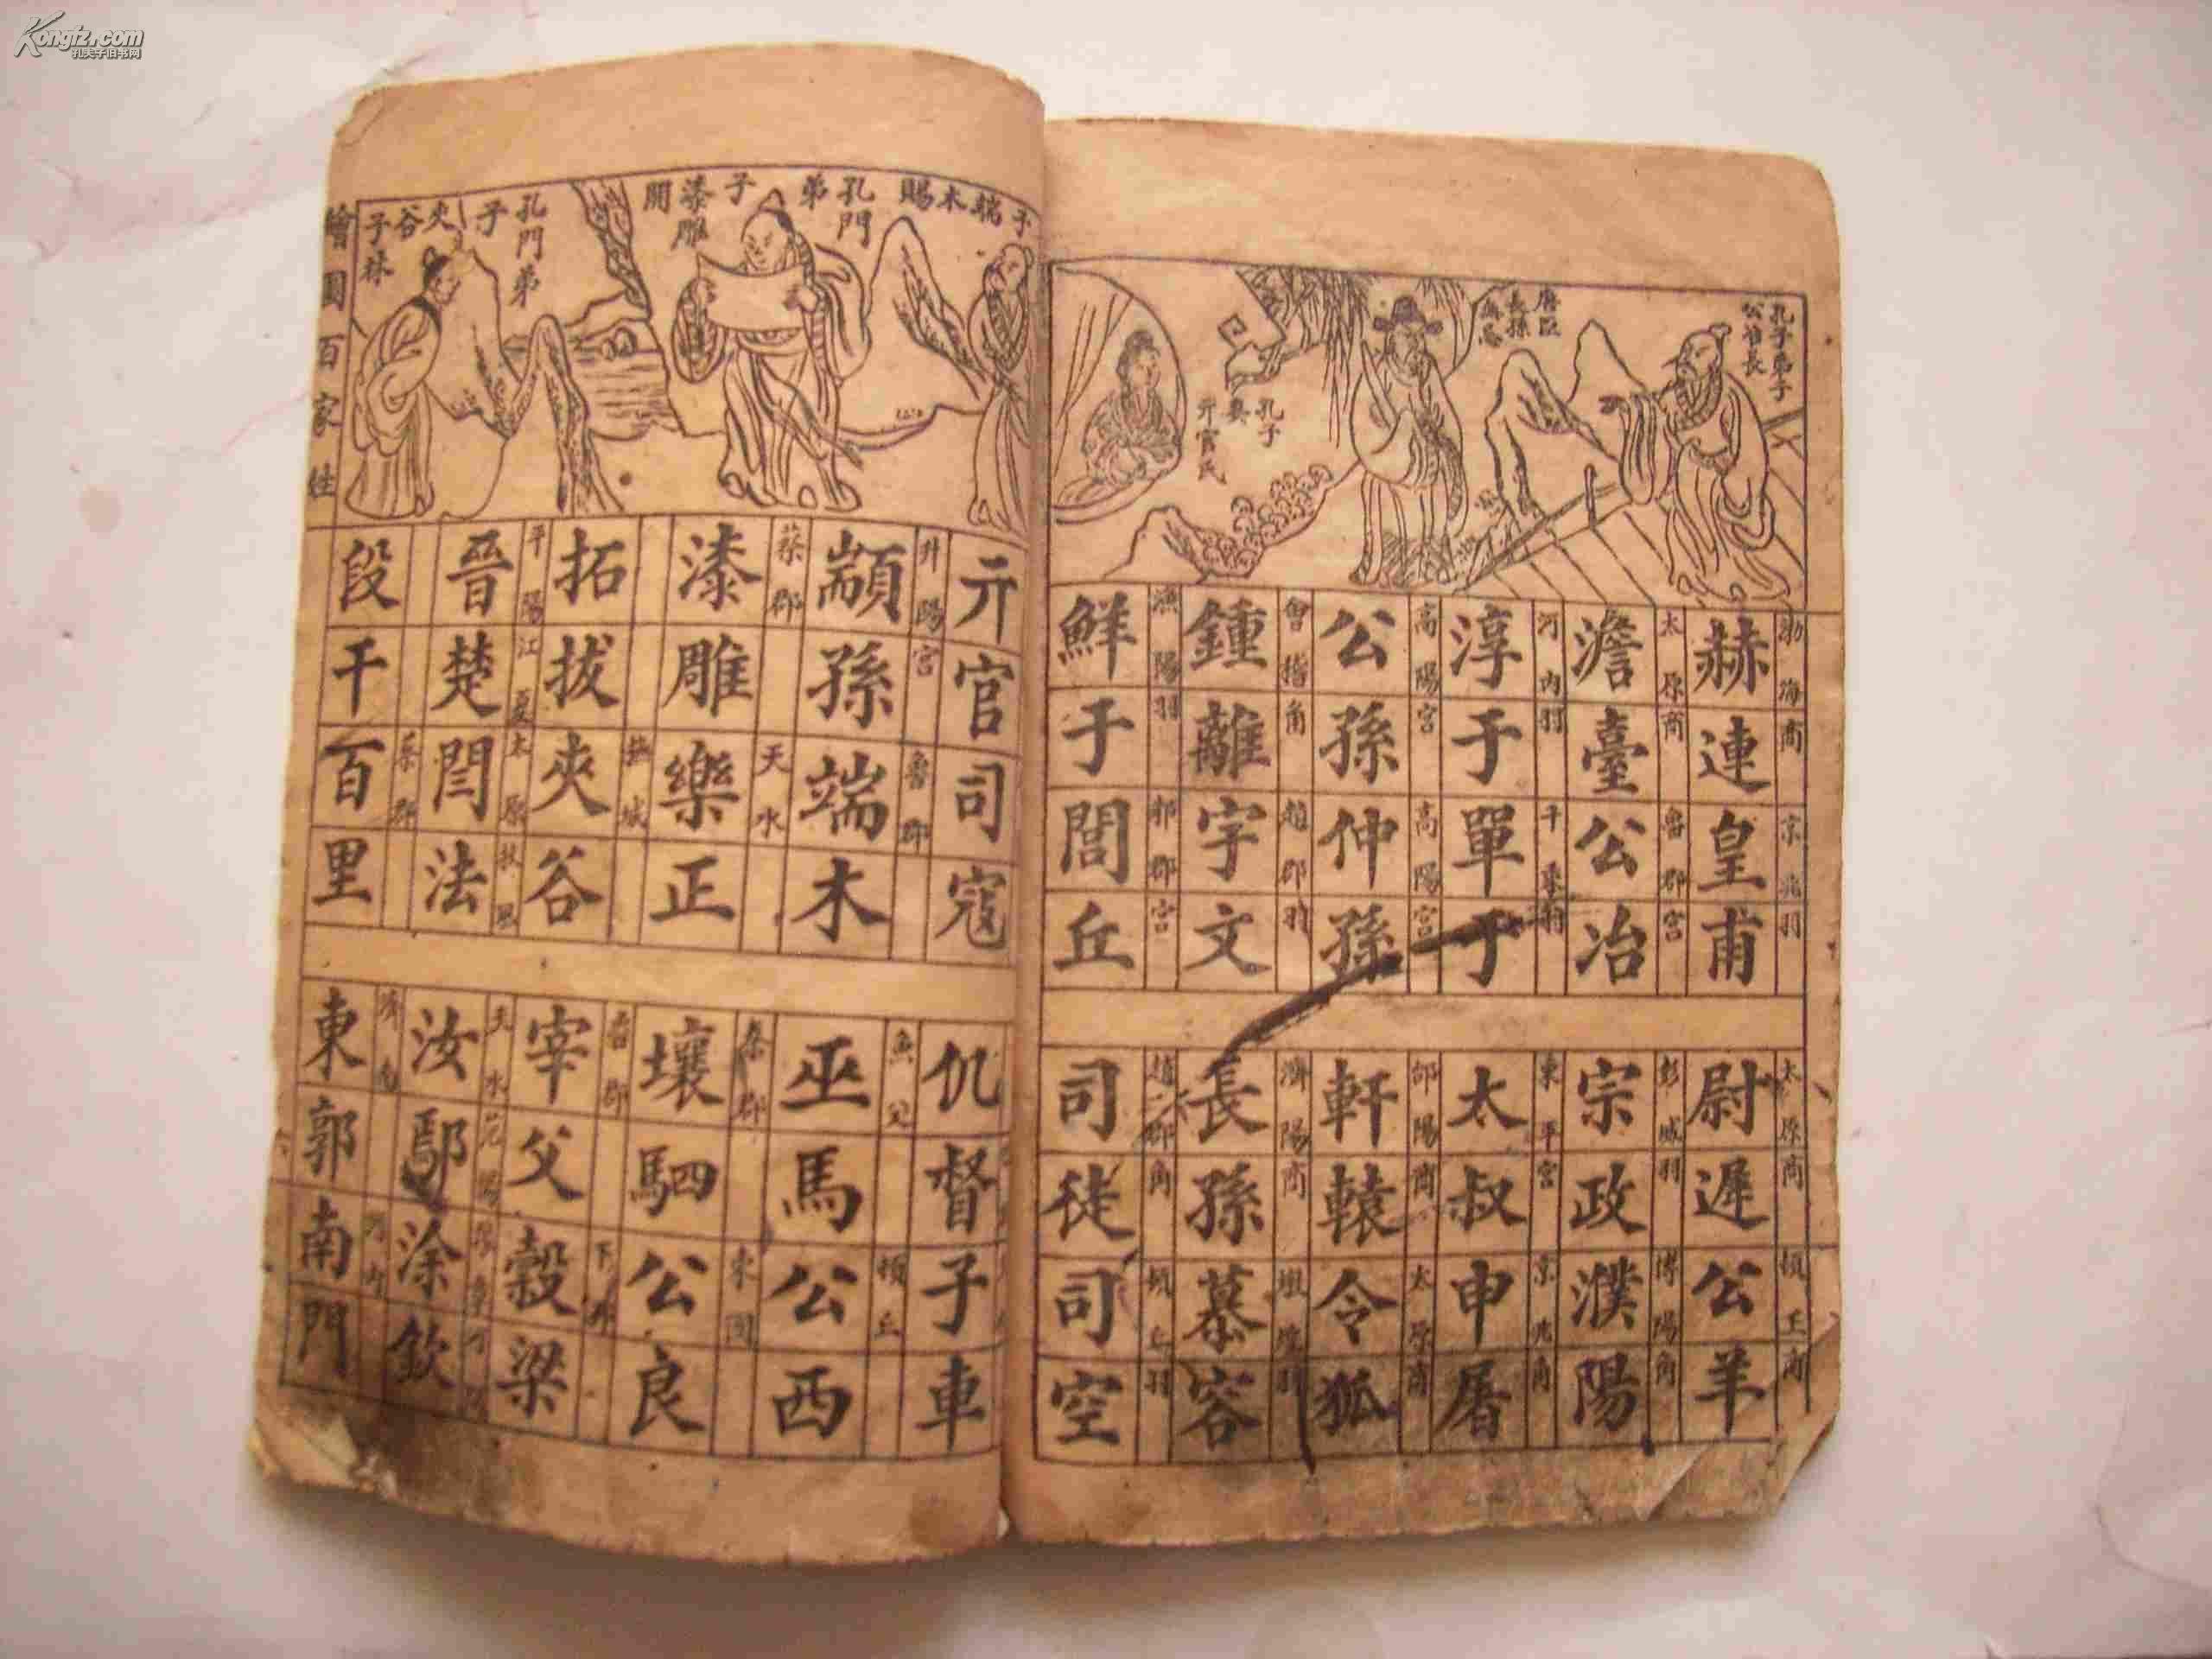 Kongfz.com
孔夫子旧书网
孔子弟子
公冶長
唐臣
長孫
無忌
孔子
亓官氏
赫連皇甫
渤海商
京兆羽
澹臺公冶
太原商
魯郡宮
淳于單于
河內羽
千乘羽
公孫仲孫
高陽宮
高陽宮
鍾離宇文
會稽角
趙郡羽
鮮于閭丘
漁陽羽
尉遲公羊
太原商
頓丘商
宗政濮陽
彭城羽
博陽角
太叔申屠
東平宮
京兆角
軒轅令狐
郃陽商
太原商
長孫慕容
濟陽商
司徒司空
趙郡角
頓丘羽
子端木賜
孔門弟
子漆雕
開
孔門弟
子夾谷
子林
繪圖百家姓
亓官司寇
顓孫端木
魯郡
漆雕樂正
蔡郡
天水
拓拔夾谷
晉楚閆法
平陽
江夏
太原
扶風
段干百里
仉督子車
巫馬公西
魚父
頓丘
壤駟公良
秦郡
東國
宰父穀梁
魯郡
下邳
汝鄢涂欽
天水
東郭南門
濟南
河內